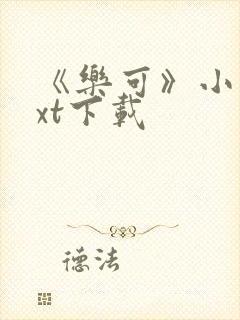 《樂可》小
xt下載
德法